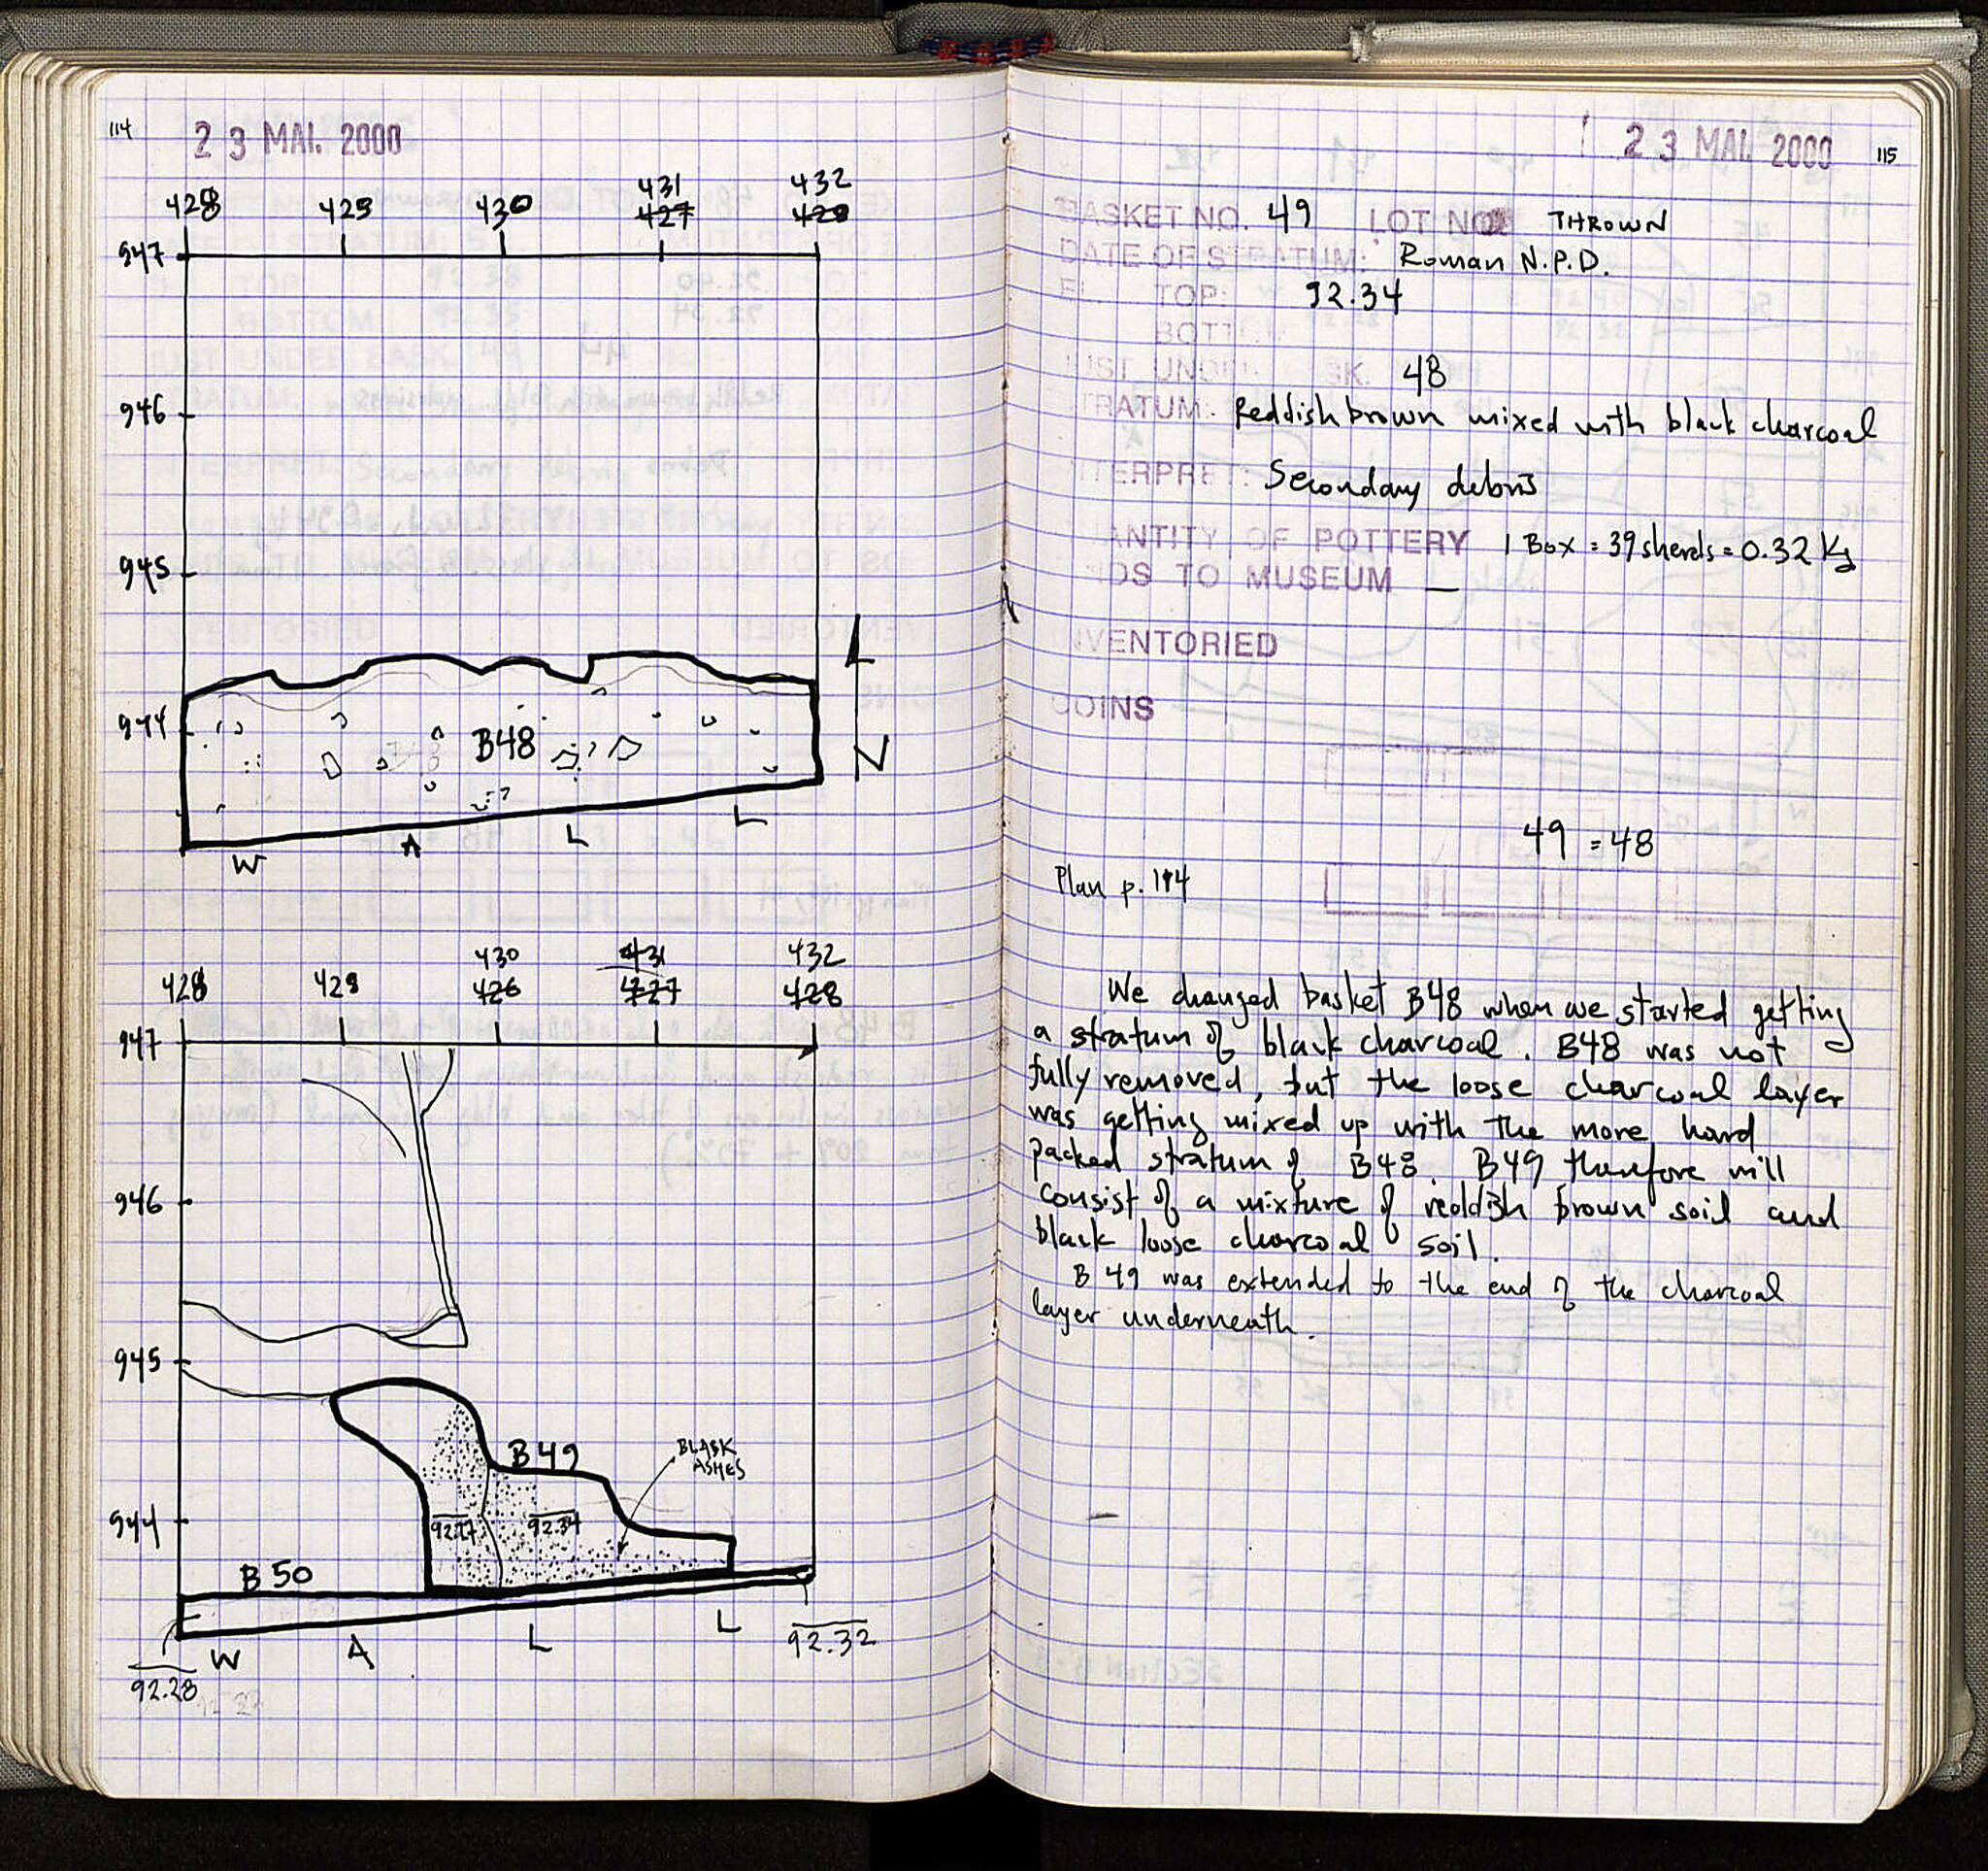 114
23 MAI. 2000
431 432
428 429 430 427 428
947
946
945
944
B48
L
L
A
W
L
N
430 431 432
428 429 426 427 428
947
946
945
B49
BLASK
ASHES
944
92.27 92.34
B 50
L
L
A
W
92.32
92.28
23 MAI. 2000 115
BASKET NO. 49 LOT NO THROWN
DATE OF STRATUM: Roman N.P.D.
EL. TOP: 92.34
BOTTOM:
JUST UNDER BSK. 48
STRATUM: Reddish brown mixed with black charcoal
INTERPRET: Secondary debris
QUANTITY OF POTTERY 1 Box = 39 sherds = 0.32 Kg
FINDS TO MUSEUM —
INVENTORIED
COINS
49 = 48
Plan p. 114
We changed basket B48 when we started getting
a stratum of black charcoal. B48 was not
fully removed, but the loose charcoal layer
was getting mixed up with the more hard
packed stratum of B48. B49 therefore will
consist of a mixture of reddish brown soil and
black loose charcoal soil.
B 49 was extended to the end of the charcoal
layer underneath.